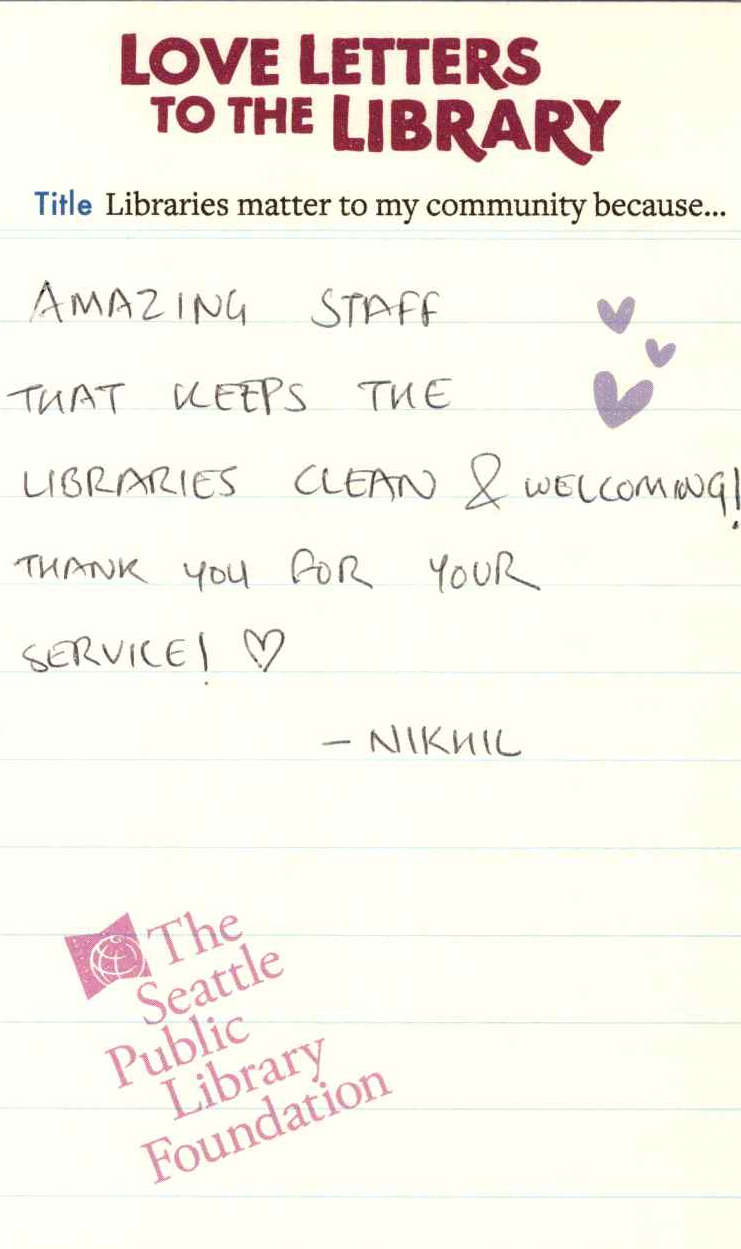 LOVE LETTERS
TO THE LIBRARY
Title Libraries matter to my community because...
AMAZING STAFF
THAT KEEPS THE
LIBRARIES CLEAN & WELCOMING!
THANK YOU FOR YOUR
SERVICE! ♡
– NIKHIL
The
Seattle
Public
Library
Foundation